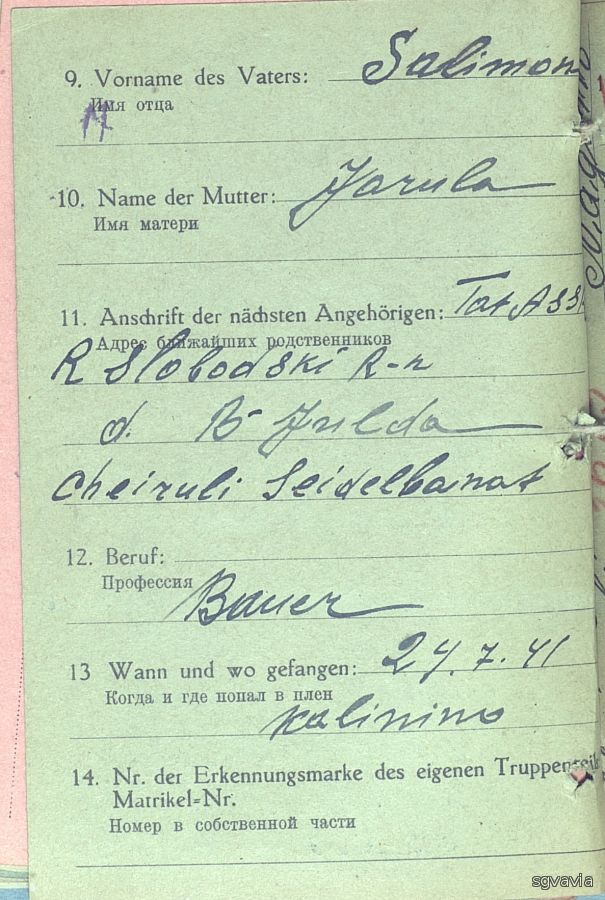 9. Vorname des Vaters: Salimon
Имя отца
10. Name der Mutter: Jarula
Имя матери
11. Anschrift der nächsten Angehörigen: Tat A S S
Адрес ближайших родственников
R Slobodski R-n
d. B Julda
Cheiruli Seidelbanat
12. Beruf:
Профессия
Bauer
13 Wann und wo gefangen: 24. 7. 41
Когда и где попал в плен
Kalinino
14. Nr. der Erkennungsmarke des eigenen Truppenteils
Matrikel-Nr.
Номер в собственной части
sgvavia